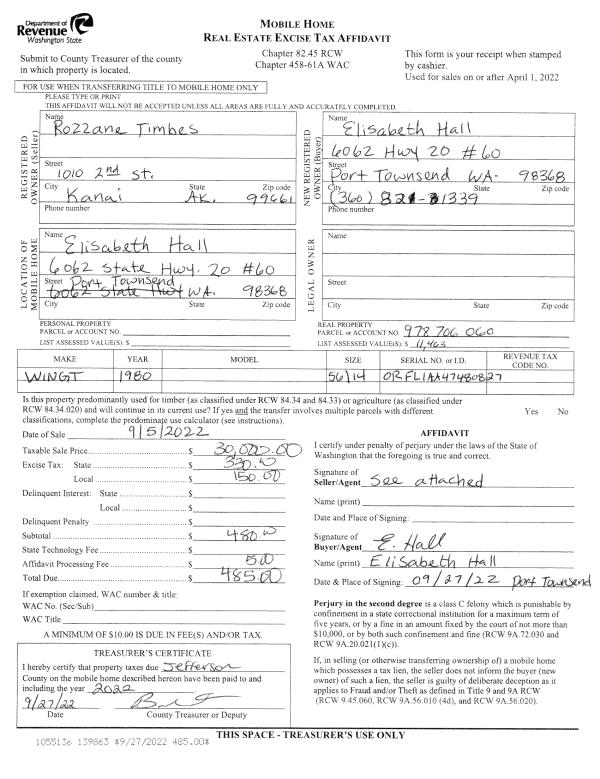 Department of
Revenue
Washington State
MOBILE HOME
REAL ESTATE EXCISE TAX AFFIDAVIT
Submit to County Treasurer of the county
in which property is located.
Chapter 82.45 RCW
Chapter 458-61A WAC
This form is your receipt when stamped
by cashier.
Used for sales on or after April 1, 2022
FOR USE WHEN TRANSFERRING TITLE TO MOBILE HOME ONLY
PLEASE TYPE OR PRINT
THIS AFFIDAVIT WILL NOT BE ACCEPTED UNLESS ALL AREAS ARE FULLY AND ACCURATELY COMPLETED.
REGISTERED
OWNER (Seller)
Name
Rozzane Timbes
Street
1010 2nd St.
City State Zip code
Kanai AK. 99661
Phone number
NEW REGISTERED
OWNER (Buyer)
Name
Elisabeth Hall
6062 Hwy 20 #60
Street
Port Townsend WA. 98368
City State Zip code
(360) 821-1339
Phone number
LOCATION OF
MOBILE HOME
Name
Elisabeth Hall
6062 State Hwy. 20 #60
Street Port Townsend
6062 State Hwy WA. 98368
City State Zip code
LEGAL OWNER
Name
Street
City State Zip code
PERSONAL PROPERTY
PARCEL or ACCOUNT NO.
LIST ASSESSED VALUE(S): $
REAL PROPERTY
PARCEL or ACCOUNT NO. 978 706 060
LIST ASSESSED VALUE(S): $ 11,463
MAKE YEAR MODEL SIZE SERIAL NO. or I.D. REVENUE TAX CODE NO.
WINGT 1980 56/14 ORFL1AA47480827
Is this property predominantly used for timber (as classified under RCW 84.34 and 84.33) or agriculture (as classified under
RCW 84.34.020) and will continue in its current use? If yes and the transfer involves multiple parcels with different
classifications, complete the predominate use calculator (see instructions). Yes No
Date of Sale 9/5/2022
Taxable Sale Price $ 30,000.00
Excise Tax: State $ 330.00
Local $ 150.00
Delinquent Interest: State $
Local $
Delinquent Penalty $
Subtotal $ 480.00
State Technology Fee $
Affidavit Processing Fee $ 5.00
Total Due $ 485.00
If exemption claimed, WAC number & title:
WAC No. (Sec/Sub)
WAC Title
A MINIMUM OF $10.00 IS DUE IN FEE(S) AND/OR TAX.
TREASURER'S CERTIFICATE
I hereby certify that property taxes due Jefferson
County on the mobile home described hereon have been paid to and
including the year 2022
9/27/22
Date County Treasurer or Deputy
AFFIDAVIT
I certify under penalty of perjury under the laws of the State of
Washington that the foregoing is true and correct.
Signature of
Seller/Agent See attached
Name (print)
Date and Place of Signing:
Signature of
Buyer/Agent E. Hall
Name (print) Elisabeth Hall
Date & Place of Signing: 09/27/22 Port Townsend
Perjury in the second degree is a class C felony which is punishable by
confinement in a state correctional institution for a maximum term of
five years, or by a fine in an amount fixed by the court of not more than
$10,000, or by both such confinement and fine (RCW 9A.72.030 and
RCW 9A.20.021(1)(c)).
If, in selling (or otherwise transferring ownership of) a mobile home
which possesses a tax lien, the seller does not inform the buyer (new
owner) of such a lien, the seller is guilty of deliberate deception as it
applies to Fraud and/or Theft as defined in Title 9 and 9A RCW
(RCW 9.45.060, RCW 9A.56.010 (4d), and RCW 9A.56.020).
THIS SPACE - TREASURER'S USE ONLY
1055136 139863 *9/27/2022 485.00*